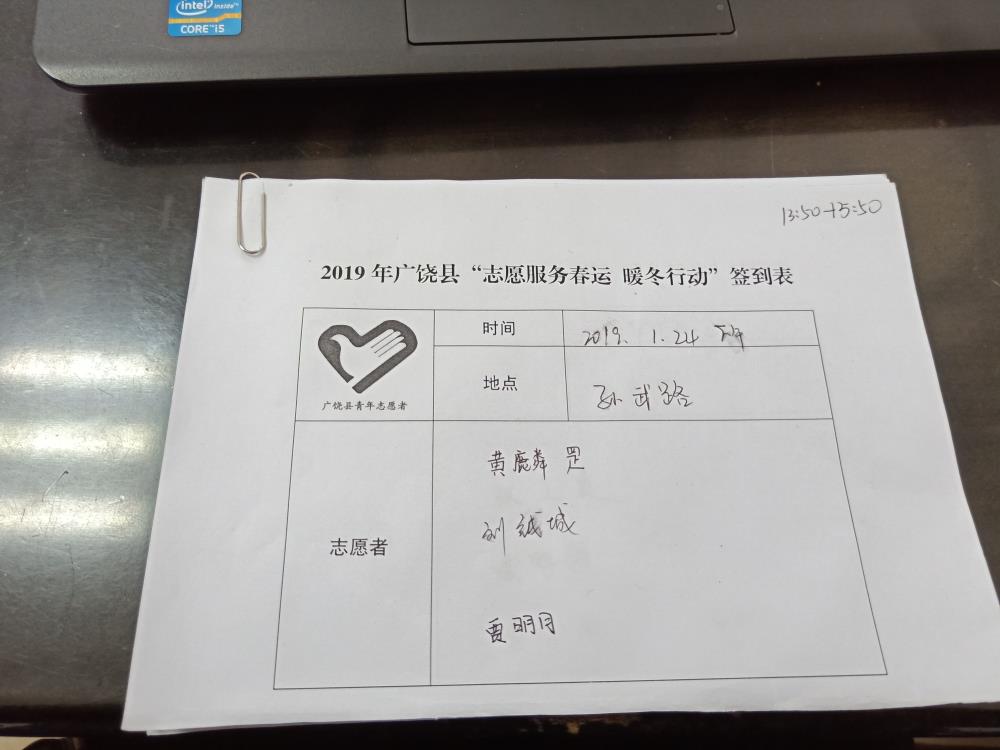 intel inside™
CORE™ i5
13:50-15:50
2019 年广饶县“志愿服务春运 暖冬行动”签到表
时间
2019. 1.24 下午
地点
孙武路
广饶县青年志愿者
志愿者
黄麟罡
刘城
贾明月